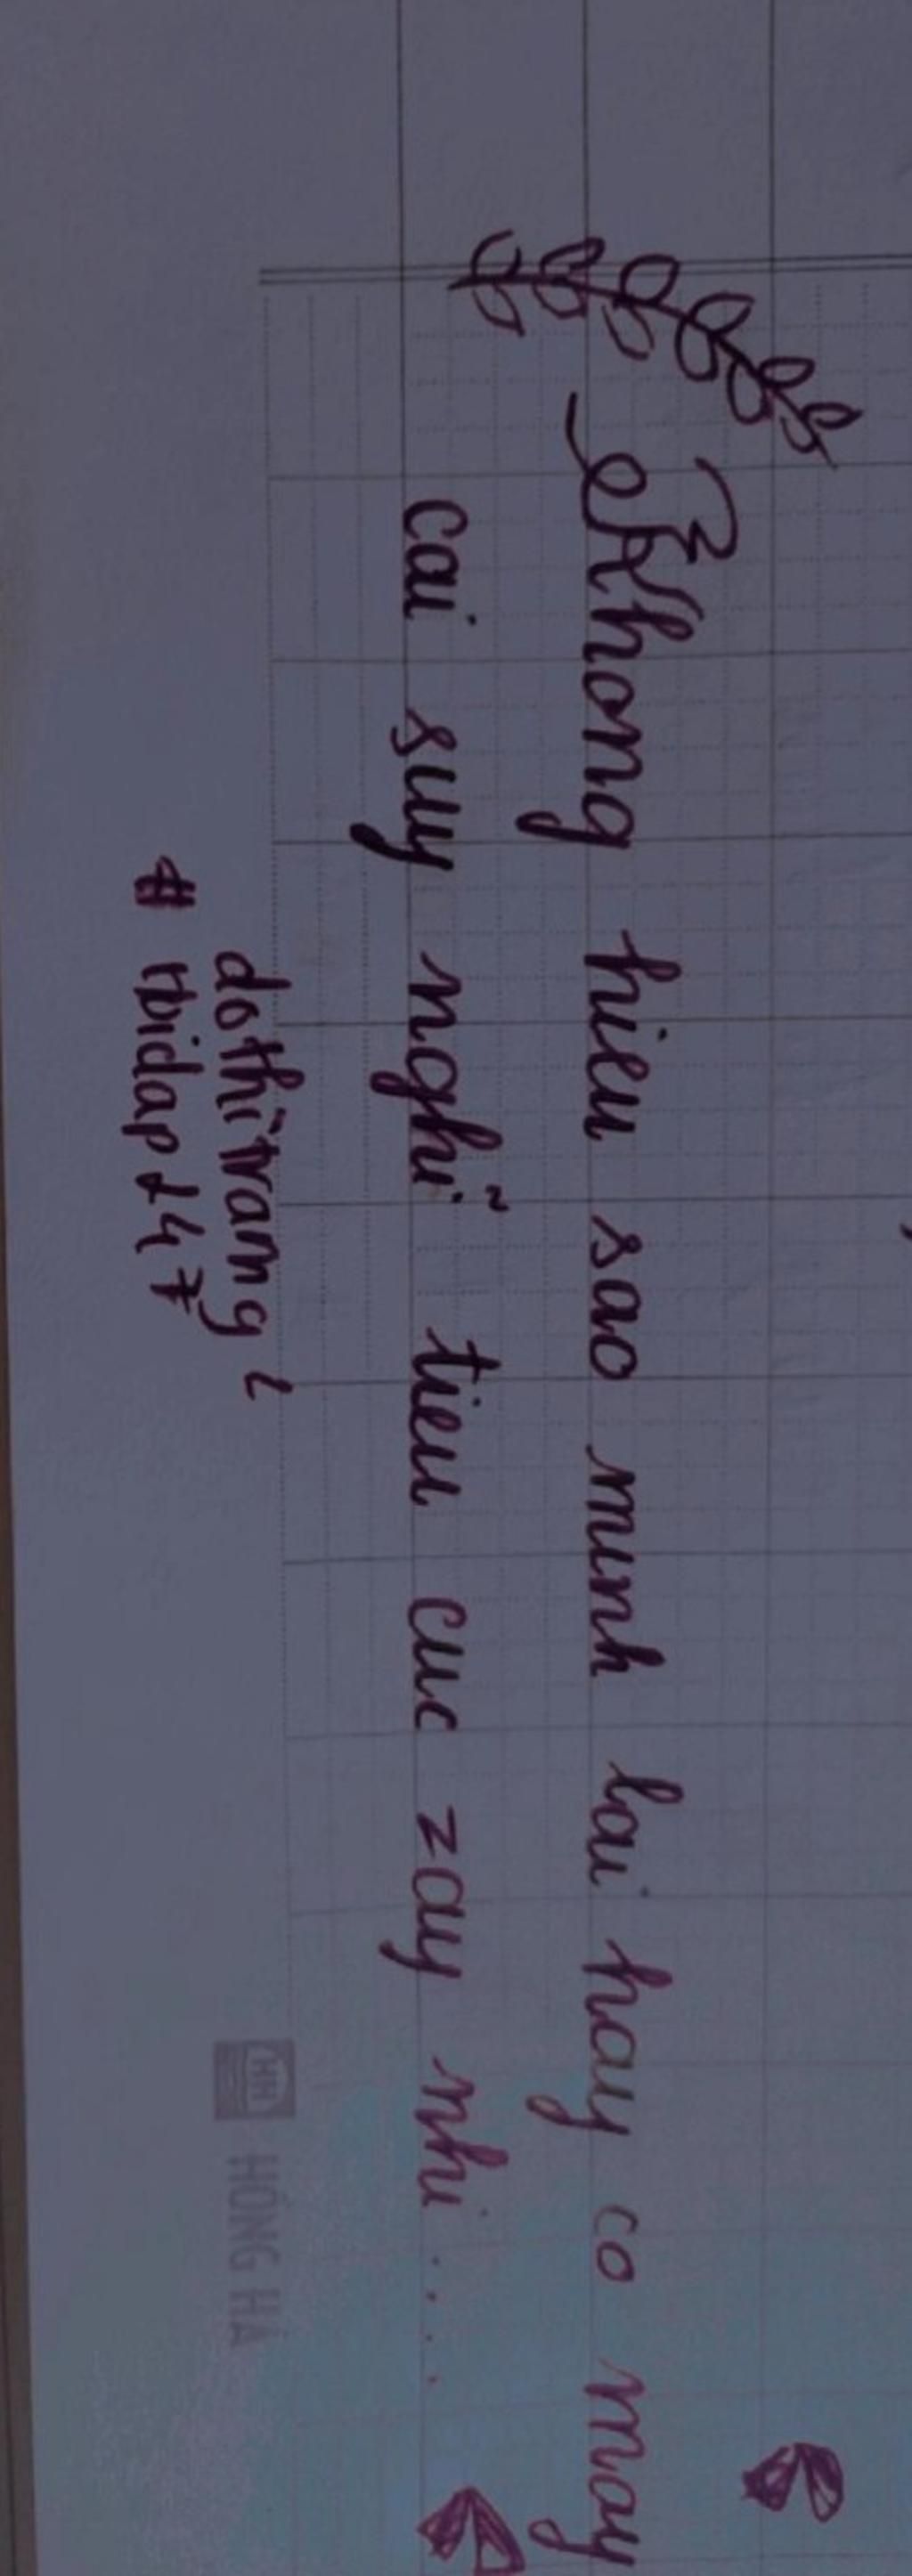 Khong hieu sao minh lai hay co may
cai suy nghĩ tieu cuc zay nhi....
dothitrang
HỒNG HÀ